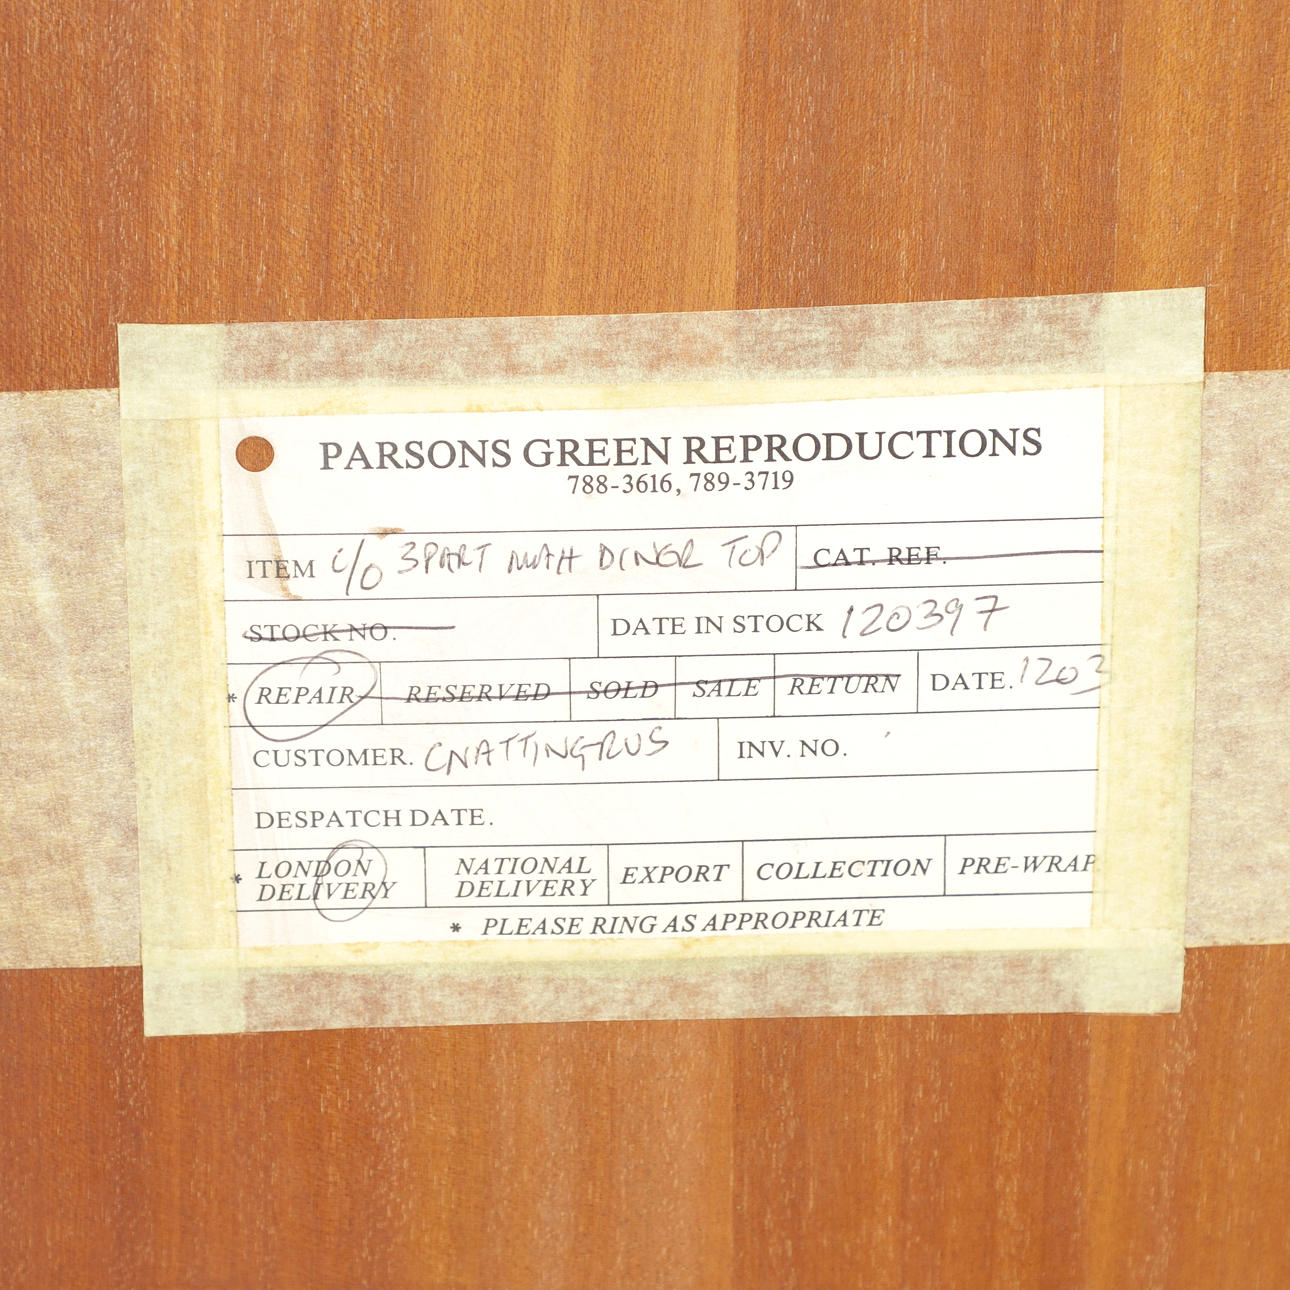 PARSONS GREEN REPRODUCTIONS
788-3616, 789-3719
ITEM c/o 3 PART MAH DINER TOP CAT. REF.
STOCK NO. DATE IN STOCK 120397
* REPAIR RESERVED SOLD SALE RETURN DATE. 1203
CUSTOMER. CNATTINGRUS INV. NO.
DESPATCH DATE.
* LONDON DELIVERY NATIONAL DELIVERY EXPORT COLLECTION PRE-WRAP
* PLEASE RING AS APPROPRIATE